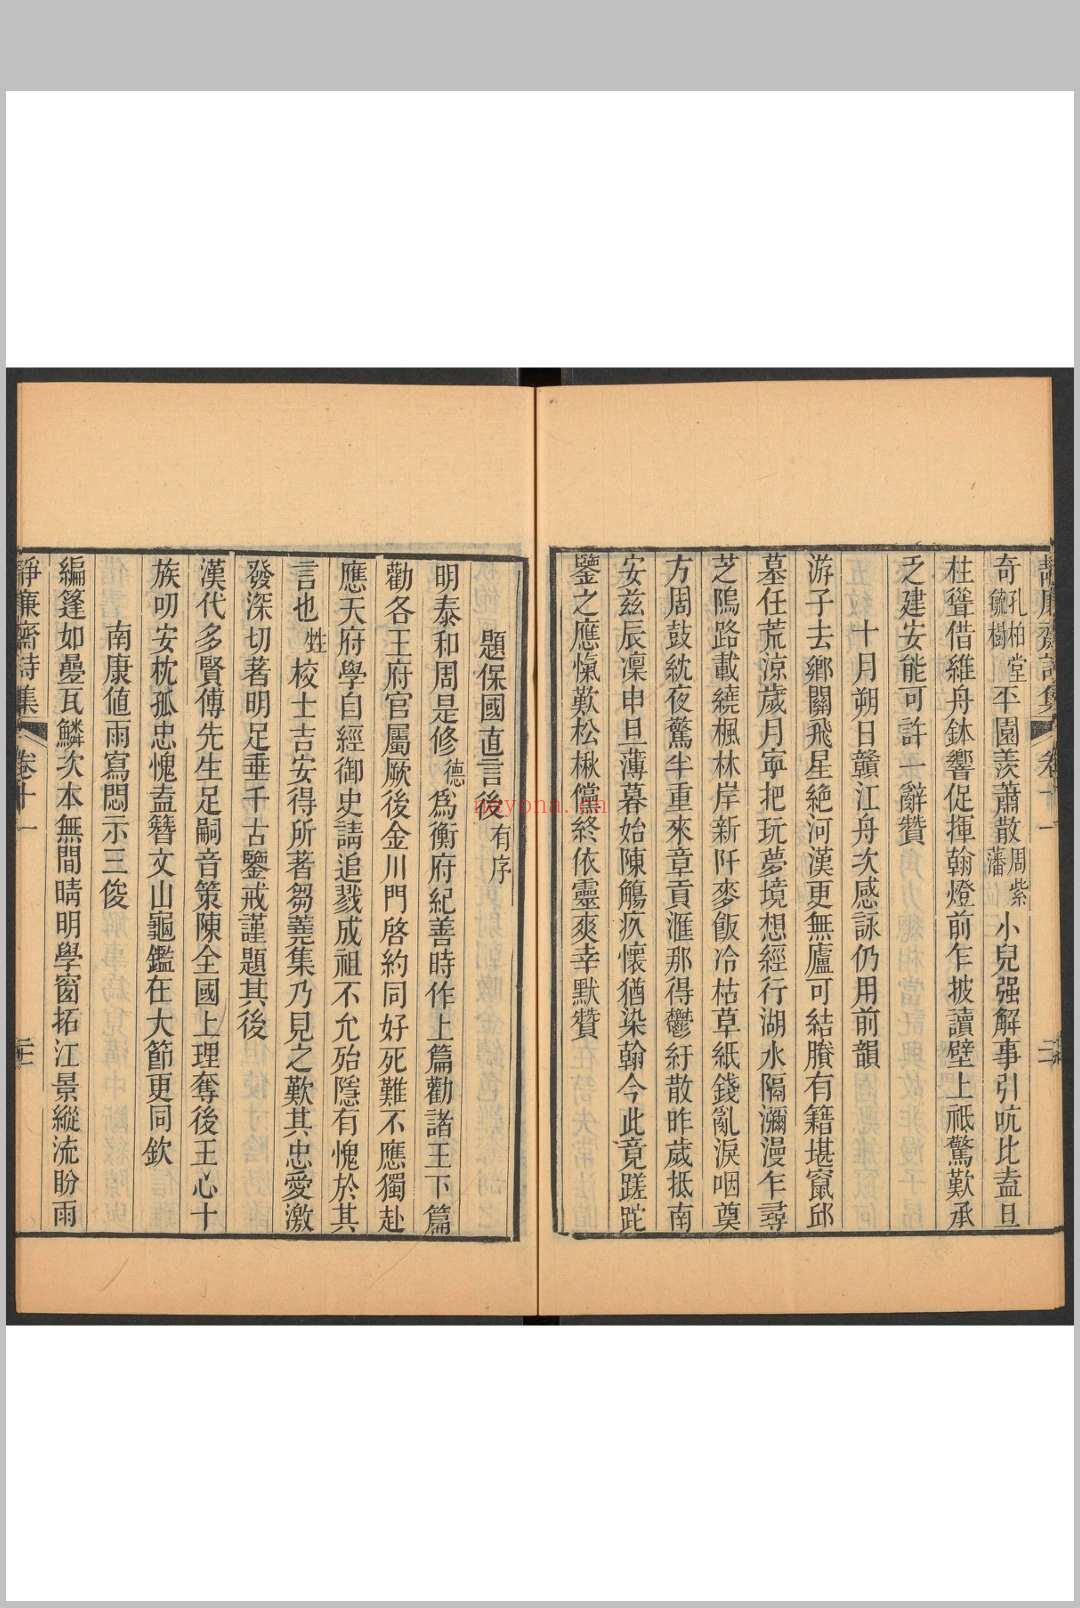 奇孔柏堂毓樹平園羨蕭散周紫藩小兒强解事引吭比盍旦
枉聳借維舟鉢響促揮翰燈前乍披讀壁上祇驚歎承
乏建安能可許一辭贊
十月朔日贛江舟次感詠仍用前韻
游子去鄉關飛星絶河漢更無廬可結賸有籍堪竄邱
墓任荒涼歲月寧把玩夢境想經行湖水隔瀰漫乍尋
芝隖路載繞楓林岸新阡麥飯冷枯草紙錢亂淚咽奠
方周鼓紞夜驚半重來章貢滙那得鬱紆散昨歲抵南
安兹辰凜申旦薄暮始陳觴疚懷猶染翰今此竟蹉跎
鑒之應愾歎松楸儻終依靈爽幸默贊
題保國直言後有序
明泰和周是修德爲衡府紀善時作上篇勸諸王下篇
勸各王府官屬厥後金川門啓約同好死難不應獨赴
應天府學自經御史請追戮成祖不允殆隱有愧於其
言也甡校士吉安得所著芻蕘集乃見之歎其忠愛激
發深切著明足垂千古鑒戒謹題其後
漢代多賢傅先生足嗣音策陳全國上理奪後王心十
族叨安枕孤忠愧盍簪文山龜鑑在大節更同欽
南康値雨寫悶示三俊
編篷如疊瓦鱗次本無間晴明學窗拓江景縱流盼雨
靜廉齋詩集 卷十一